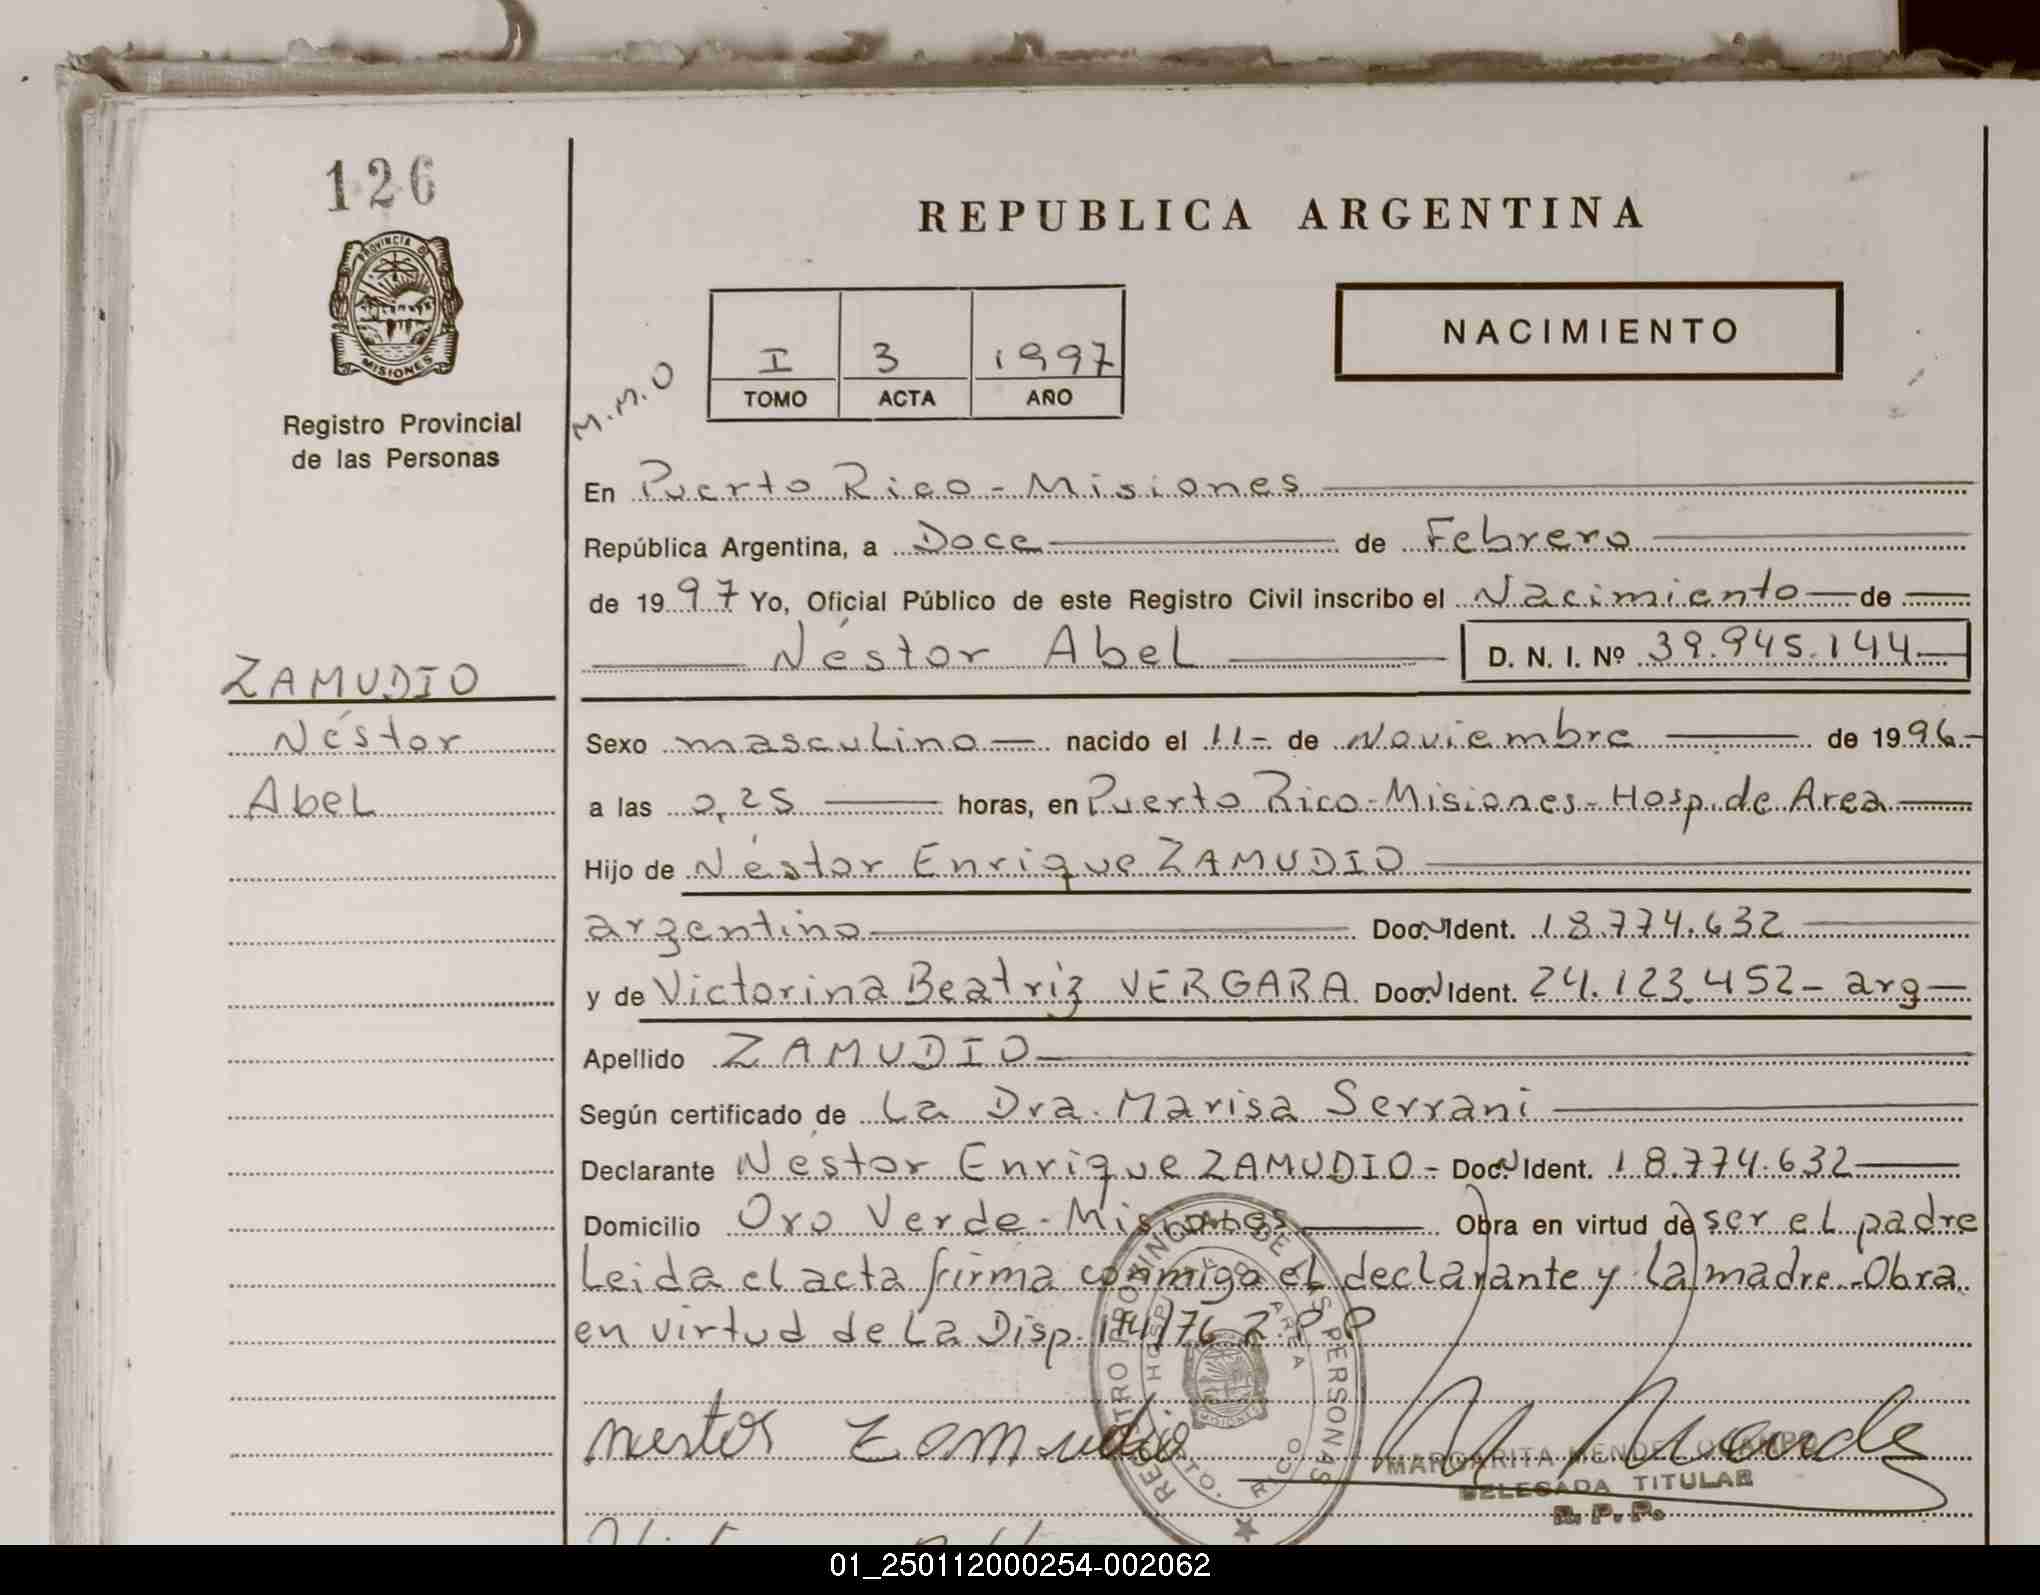 126
REPUBLICA ARGENTINA
PROVINCIA DE
MISIONES
Registro Provincial
de las Personas
M.M.O
I 3 1997
TOMO ACTA AÑO
NACIMIENTO
En Puerto Rico - Misiones
República Argentina, a Doce de Febrero
de 1997 Yo, Oficial Público de este Registro Civil inscribo el Nacimiento de
Néstor Abel D. N. I. Nº 39.945.144
ZAMUDIO
Néstor
Abel
Sexo masculino nacido el 11- de Noviembre de 1996-
a las 0,25 horas, en Puerto Rico-Misiones-Hosp. de Area
Hijo de Néstor Enrique ZAMUDIO
argentino Doc. Ident. 18.774.632
y de Victorina Beatriz VERGARA Doc. Ident. 24.123.452- arg
Apellido ZAMUDIO
Según certificado de La Dra. Marisa Serrani
Declarante Néstor Enrique ZAMUDIO- Doc. Ident. 18.774.632
Domicilio Oro Verde-Misiones Obra en virtud de ser el padre
Leida el acta firma conmigo el declarante y la madre-Obra
en virtud de La Disp.
REGISTRO PROVINCIAL DE LAS PERSONAS
HOSPITAL DE AREA
PTO. RICO
MISIONES
nestor Zamudio
MARGARITA MENDEZ OCAMPO
DELEGADA TITULAR
R.P.P.
01_250112000254-002062